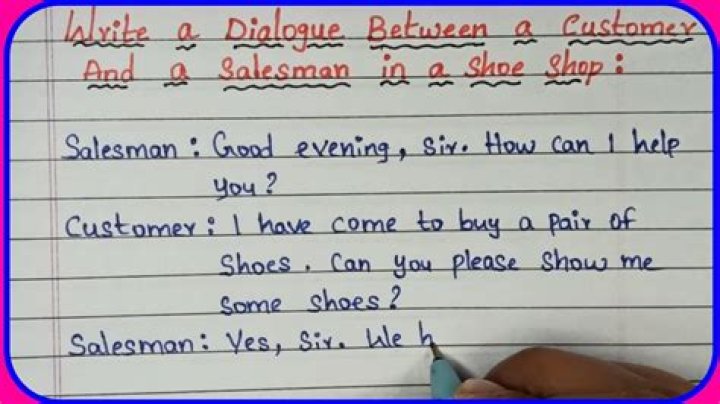 Write a Dialogue Between a Customer
And a Salesman in a Shoe Shop :
Salesman : Good evening, Sir. How can I help
you?
Customer : I have come to buy a pair of
Shoes. Can you please show me
some shoes?
Salesman : Yes, Sir. We h